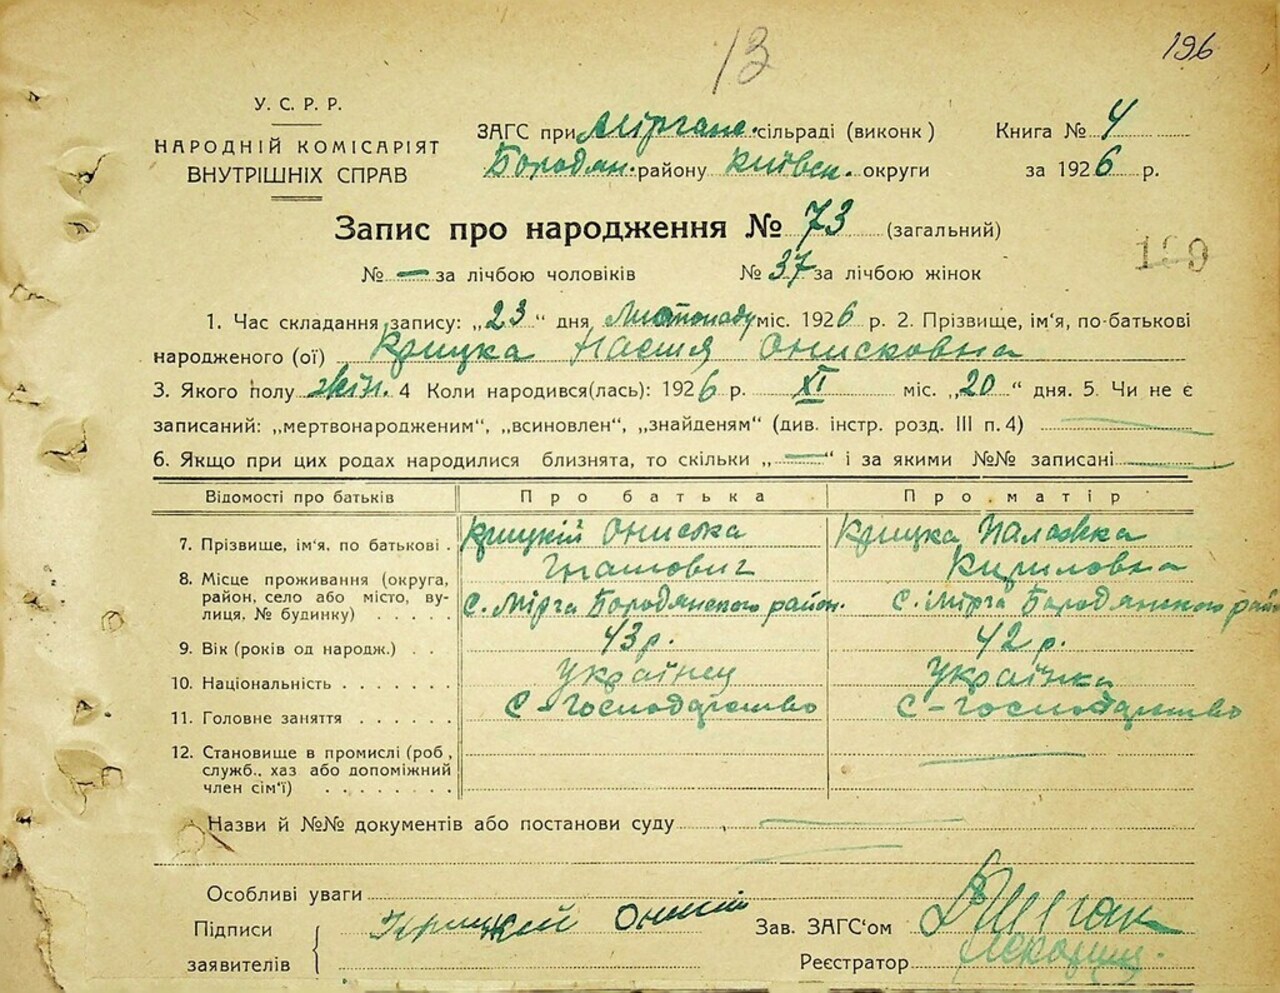 13
196
У. С. Р. Р.
НАРОДНІЙ КОМІСАРІЯТ
ВНУТРІШНІХ СПРАВ
ЗАГС при сільраді (виконк)
Бородян. району Київськ. округи
Книга № 4
за 1926 р.
Запис про народження № 73 (загальний)
№ — за лічбою чоловіків № 37 за лічбою жінок
1. Час складання запису: „23“ дня Листопаду міс. 1926 р. 2. Прізвище, ім'я, по-батькові
народженого (ої) Крицка Настя Онисковна
3. Якого полу жін. 4 Коли народився(лась): 1926 р. XI міс. „20“ дня. 5. Чи не є
записаний: „мертвонародженим“, „всиновлен“, „знайденям“ (див. інстр. розд. III п. 4) —
6. Якщо при цих родах народилися близнята, то скільки „—“ і за якими №№ записані —
Відомості про батьків Про батька Про матір
7. Прізвище, ім'я, по батькові . Крицкій Ониська Гнатович Крицка Палажка Кириловна
8. Місце проживання (округа,
район, село або місто, ву-
лиця, № будинку) . . . . . с. Мірча Бородянского район. с. Мірча Бородянского район
9. Вік (років од народж.) . . 43 р. 42 р.
10. Національність . . . . . . . Українец Українка
11. Головне заняття . . . . . . С-господарство С-господарство
12. Становище в промислі (роб,
служб., хаз або допоміжний
член сім'ї) . . . . . . . . —
Назви й №№ документів або постанови суду —
Особливі уваги
Підписи
заявителів
Крицкій
Зав. ЗАГС'ом
Реєстратор